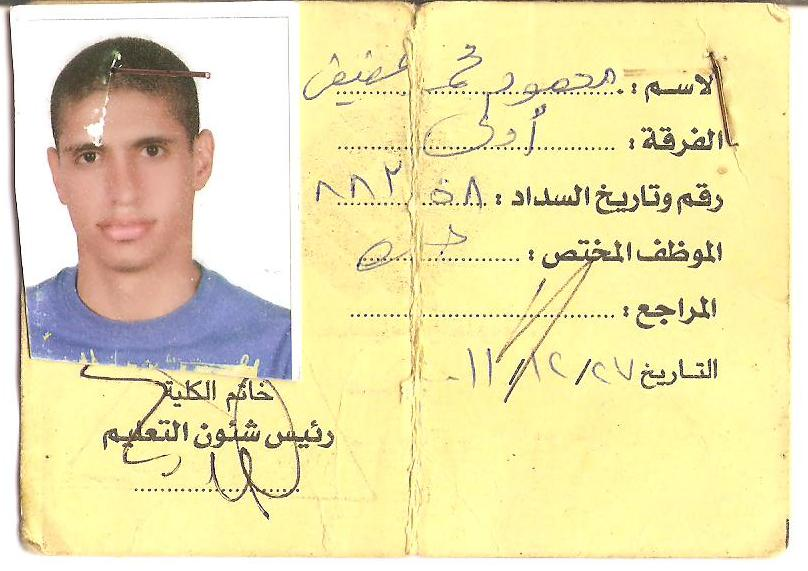 الاسم : محمود محمد عفيفى
الفرقة : أولى
رقم وتاريخ السداد :
الموظف المختص :
المراجع :
التاريخ ٢٧/١٢/١١
خاتم الكلية
رئيس شئون التعليم